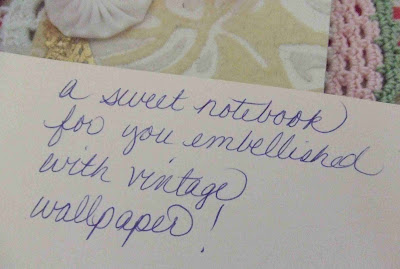 a sweet notebook
for you embellished
with vintage
wallpaper!